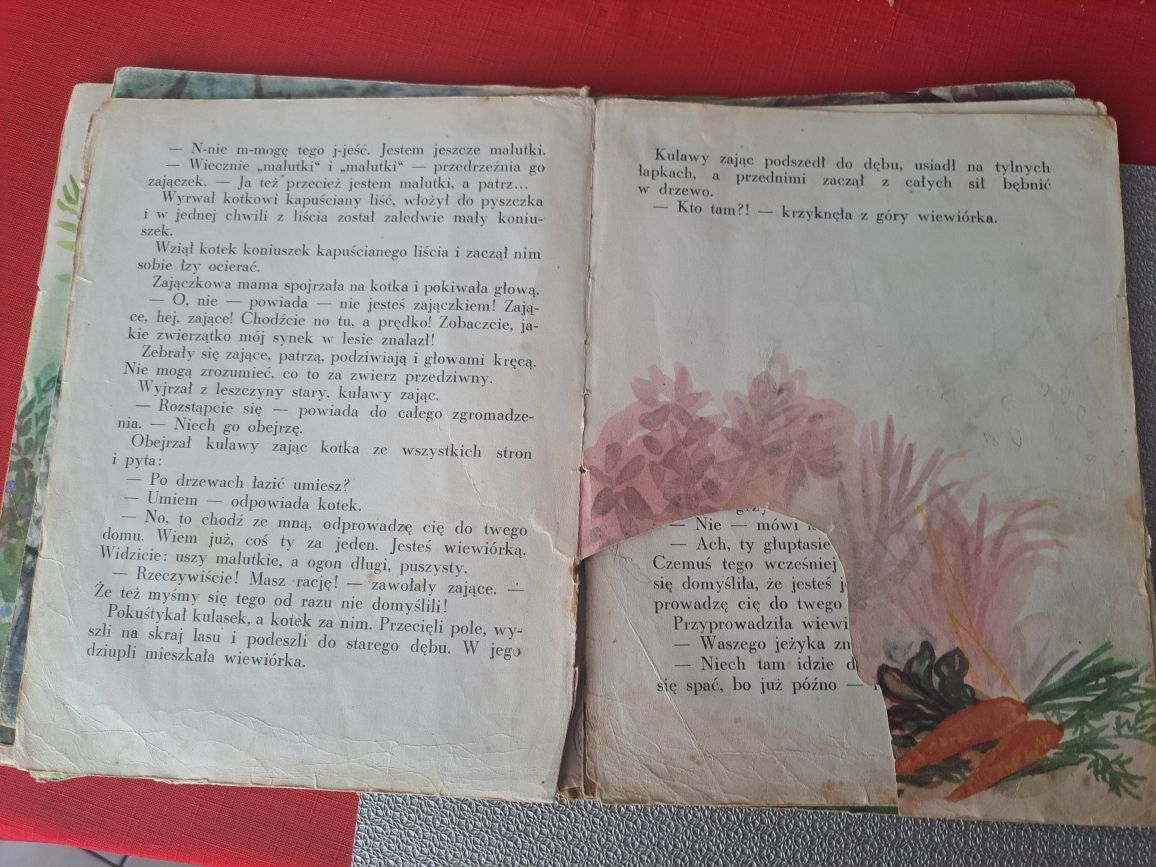 — N-nie m-mogę tego j-jeść. Jestem jeszcze malutki.
— Wiecznie „malutki“ i „malutki“ — przedrzeźnia go
zajączek. — Ja też przecież jestem malutki, a patrz...
Wyrwał kotkowi kapuściany liść, włożył do pyszczka
i w jednej chwili z liścia został zaledwie mały koniu-
szek.
Wziął kotek koniuszek kapuścianego liścia i zaczął nim
sobie łzy ocierać.
Zajączkowa mama spojrzała na kotka i pokiwała głową.
— O, nie — powiada — nie jesteś zajączkiem! Zają-
ce, hej, zające! Chodźcie no tu, a prędko! Zobaczcie, ja-
kie zwierzątko mój synek w lesie znalazł!
Zebrały się zające, patrzą, podziwiają i głowami kręcą.
Nie mogą zrozumieć, co to za zwierz przedziwny.
Wyjrzał z leszczyny stary, kulawy zając.
— Rozstąpcie się — powiada do całego zgromadze-
nia. — Niech go obejrzę.
Obejrzał kulawy zając kotka ze wszystkich stron
i pyta:
— Po drzewach łazić umiesz?
— Umiem — odpowiada kotek.
— No, to chodź ze mną, odprowadzę cię do twego
domu. Wiem już, coś ty za jeden. Jesteś wiewiórką.
Widzicie: uszy malutkie, a ogon długi, puszysty.
— Rzeczywiście! Masz rację! — zawołały zające. —
Że też myśmy się tego od razu nie domyślili!
Pokuśtykał kulasek, a kotek za nim. Przecięli pole, wy-
szli na skraj lasu i podeszli do starego dębu. W jego
dziupli mieszkała wiewiórka.
Kulawy zając podszedł do dębu, usiadł na tylnych
łapkach, a przednimi zaczął z całych sił bębnić
w drzewo.
— Kto tam?! — krzyknęła z góry wiewiórka.
— Nie — mówi
— Ach, ty głuptasie
Czemuś tego wcześniej
się domyśliła, że jesteś
prowadzę cię do twego
Przyprowadziła wiewi
— Waszego jeżyka zn
— Niech tam idzie d
się spać, bo już późno —